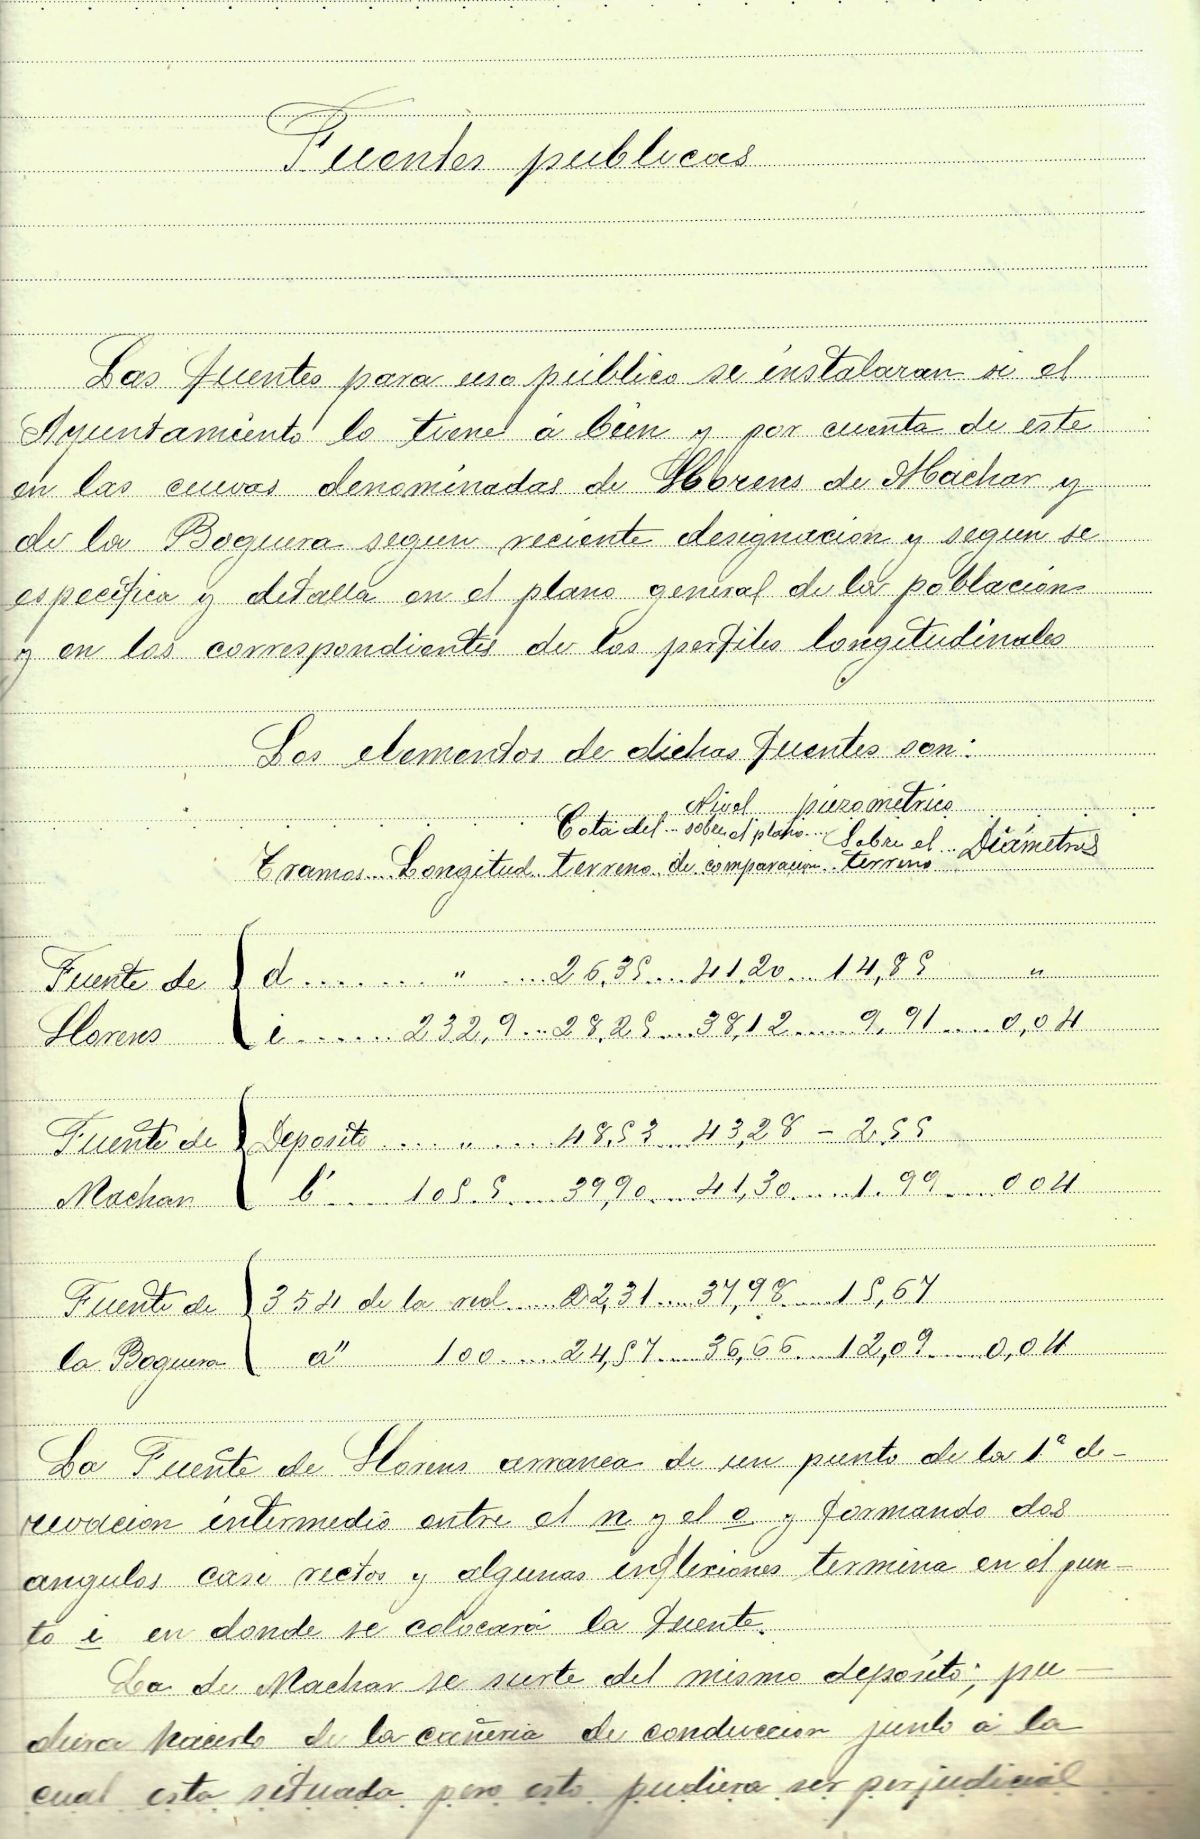 Fuentes publicas
Las fuentes para uso público se instalaran si el
Ayuntamiento lo tiene á bien y por cuenta de este
en las cuevas denominadas de Llorens de Machar y
de la Boguera segun reciente designacion y segun se
especifica y detalla en el plano general de la poblacion
y en los correspondientes de los perfiles longitudinales
Los elementos de dichas fuentes son:
Nivel piezometrico
Cota del sobre el plano Sobre el Diámetros
Tramos Longitud terreno de comparacion terreno
Fuente de { d ....... " ... 26,35 ... 41,20 ... 14,85 "
Llorens i ...... 232,9 ... 28,25 ... 38,12 .... 9,91 .... 0,04
Fuente de { Deposito .... " .... 48,53 ... 43,28 – 2.55
Machar b' .... 105.5 .... 39,90 .... 41,30 .... 1.99 .... 004
Fuente de { 354 de la red .... 22,31 .... 37,98 .... 15,67
la Boguera a" 100 .... 24,57 .... 36,66 .... 12,09 .... 0,04
La Fuente de Llorens arranca de un punto de la 1ª de-
rivacion intermedio entre el n y el o y formando dos
angulos casi rectos y algunas inflexiones termina en el pun-
to i en donde se colocará la fuente.
La de Machar se surte del mismo depósito; pu-
diera hacerlo de la cañeria de conduccion junto á la
cual esta situada pero esto pudiera ser perjudicial